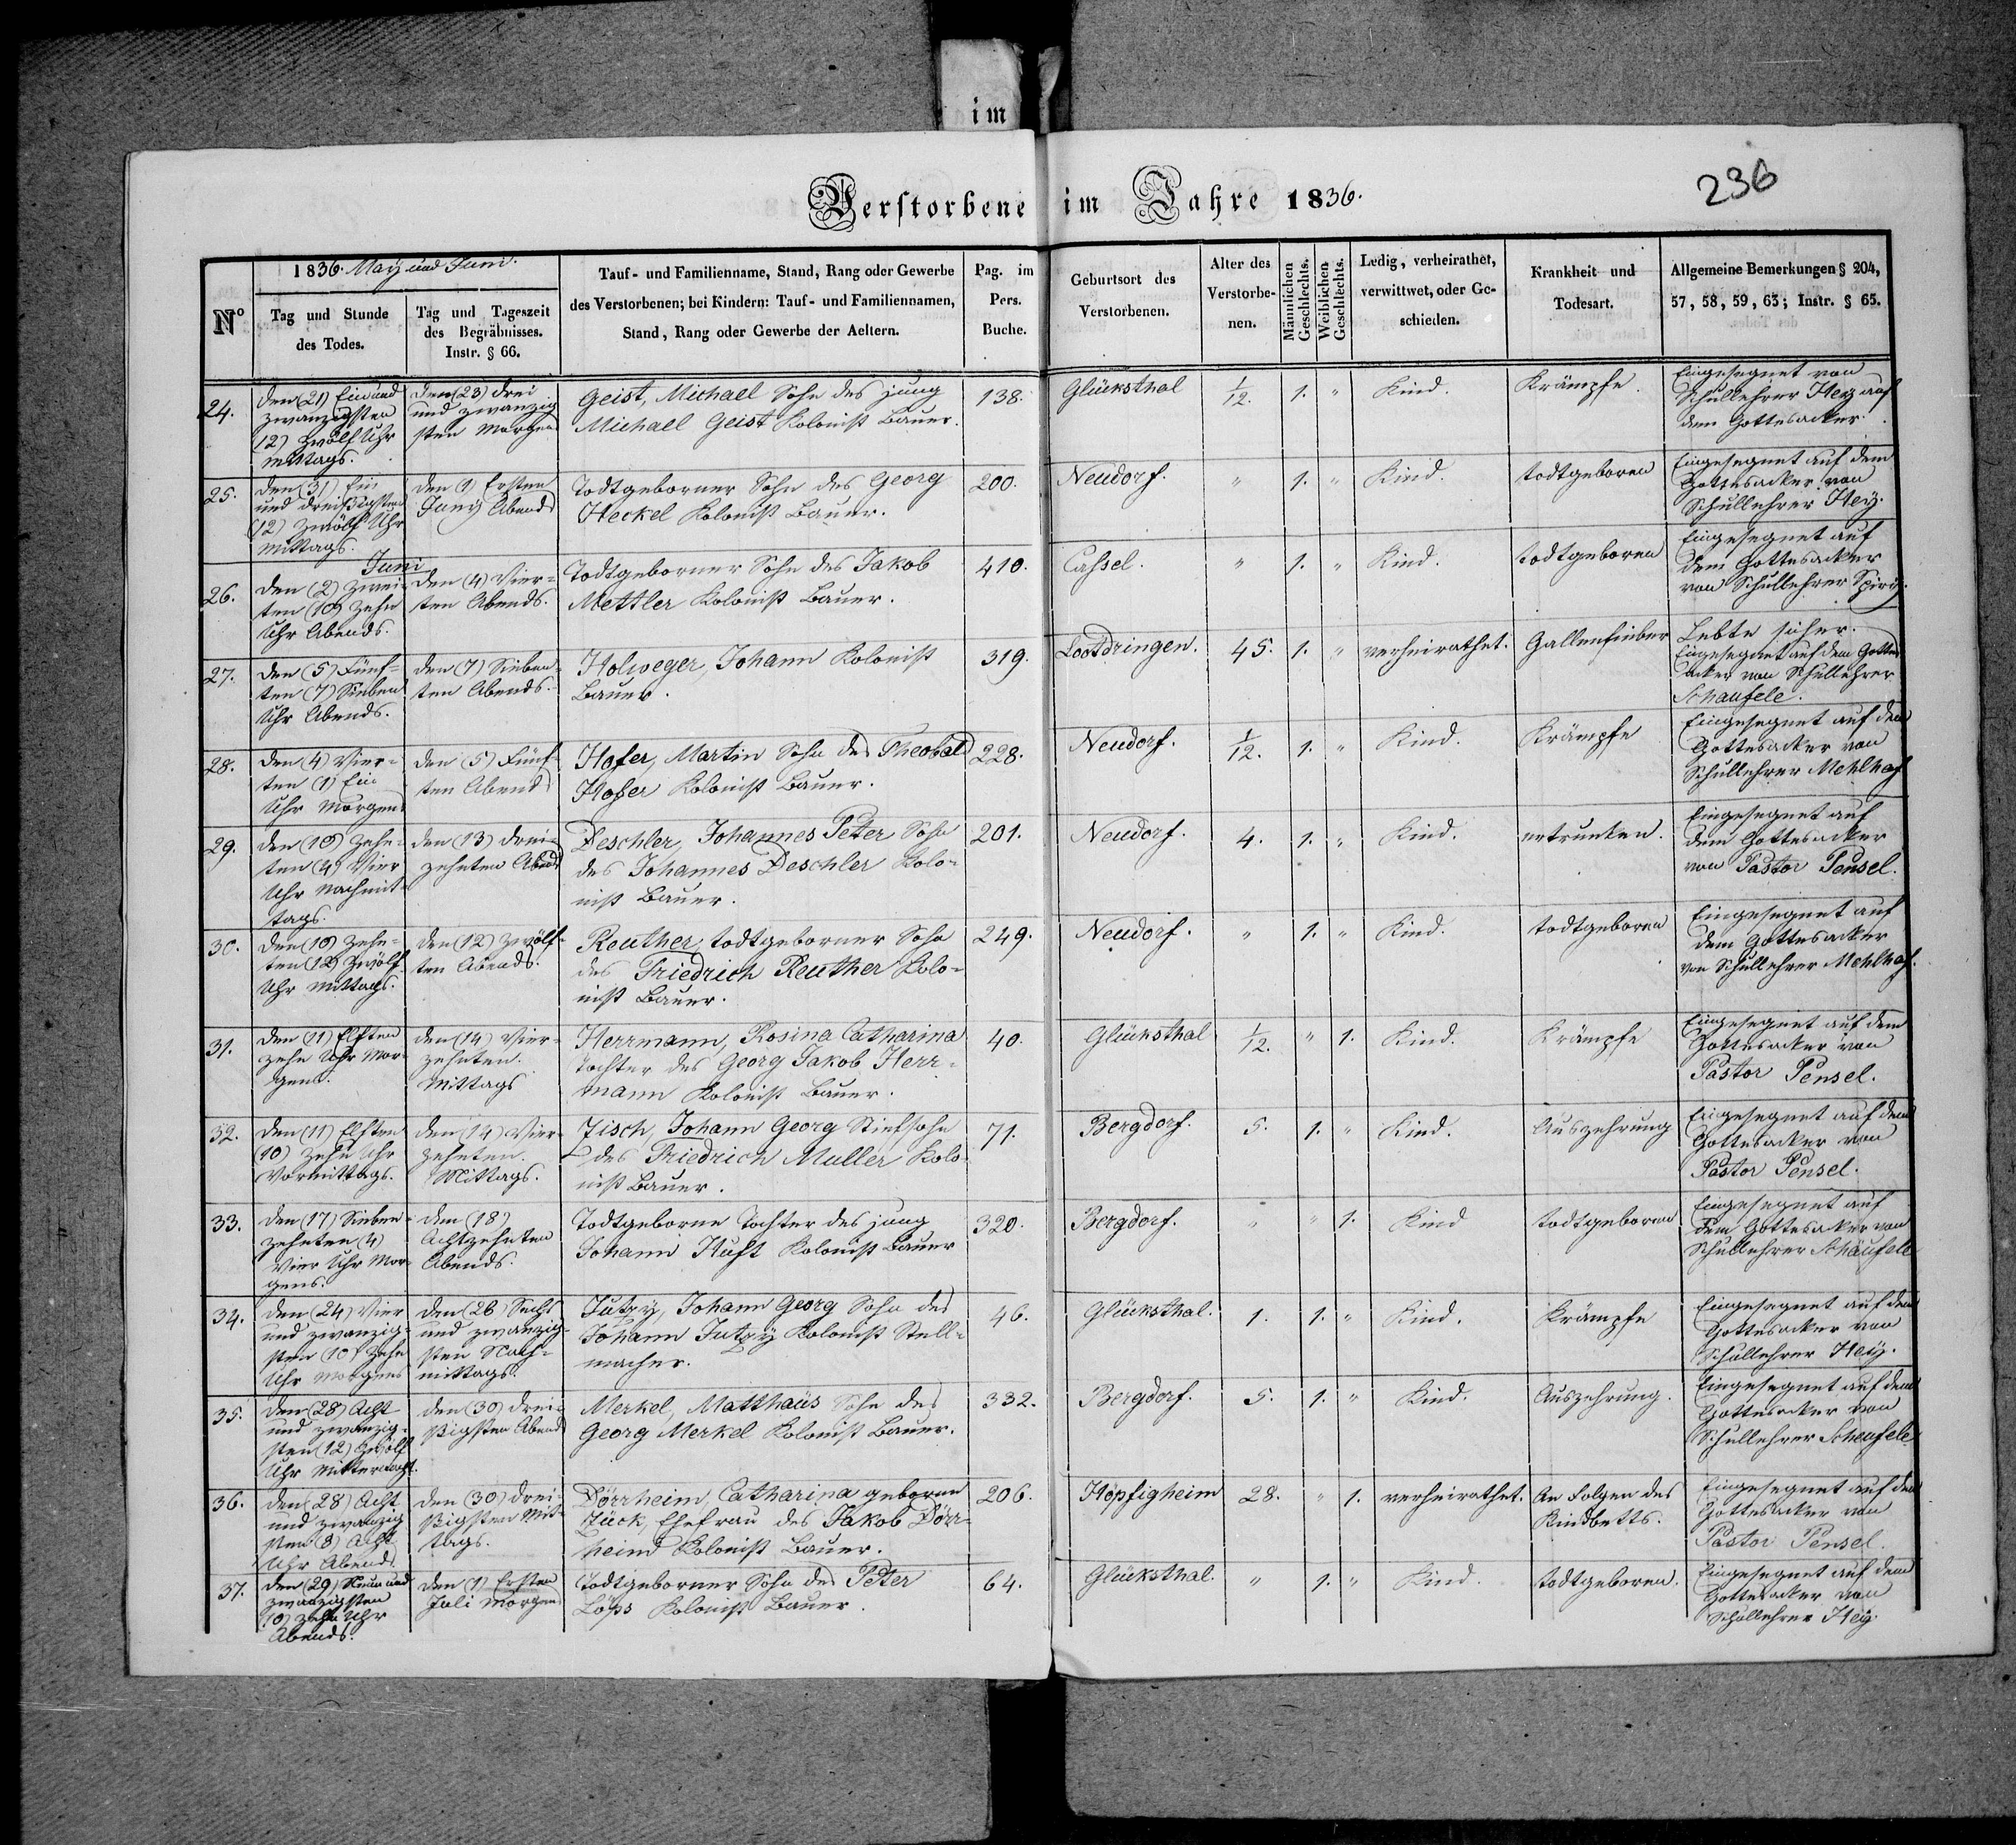 im
Verstorbene im Jahre 1836.
236
Nº
1836. May und Juni.
Tag und Stunde
des Todes.
Tag und Tageszeit
des Begräbnisses.
Instr. § 66.
Tauf- und Familienname, Stand, Rang oder Gewerbe
des Verstorbenen; bei Kindern: Tauf- und Familiennamen,
Stand, Rang oder Gewerbe der Aeltern.
Pag. im
Pers.
Buche.
Geburtsort des
Verstorbenen.
Alter des
Verstorbe-
nen.
Männlichen
Geschlechts.
Weiblichen
Geschlechts.
Ledig, verheirathet,
verwittwet, oder Ge-
schieden.
Krankheit und
Todesart.
Allgemeine Bemerkungen § 204,
57, 58, 59, 63; Instr. § 65.
24.
den (21) Ein und
zwanzigsten
(12) Zwölf Uhr
Mittags.
den (23) drei
und zwanzig
sten Morgens
Geist, Michael Sohn des jung
Michael Geist Kolonist Bauer.
138.
Glücksthal
1/12.
1.
"
Kind.
Krämpfe.
Eingesegnet von
Schullehrer Hey auf
dem Gottesacker.
25.
den (31) Ein
und dreißigsten
(12) Zwölf Uhr
Mittags.
den (1) Ersten
Juny Abends
Todtgeborner Sohn des Georg
Heckel Kolonist Bauer.
200.
Neudorf.
"
1.
"
Kind.
todtgeboren
Eingesegnet auf dem
Gottesacker von
Schullehrer Hey.
Juni
26.
den (2) Zwei-
ten (10) Zehn
Uhr Abends.
den (4) Vier-
ten Abends.
Todtgeborner Sohn des Jakob
Mettler Kolonist Bauer.
410.
Cassel.
"
1.
"
Kind.
todtgeboren
Eingesegnet auf
dem Gottesacker
von Schullehrer Spiry.
27.
den (5) Fünf-
ten (7) Sieben
Uhr Abends.
den (7) Sieben-
ten Abends.
Holweger, Johann Kolonist
Bauer.
319.
Lootdringen.
45.
1.
"
verheirathet.
Gallenfieber
Lebte sicher.
Eingesegnet auf dem Gottes
acker von Schullehrer
Schaufele.
28.
den (4) Vier-
ten (1) Ein
Uhr Morgens
den (5) Fünf
ten Abends
Hofer, Martin Sohn des Theobald
Hofer Kolonist Bauer.
228.
Neudorf.
1/12.
1.
"
Kind.
Krämpfe
Eingesegnet auf dem
Gottesacker von
Schullehrer Mehlhaf
29.
den (10) Zehn-
ten (4) Vier
Uhr Nachmit-
tags.
den (13) drei-
zehnten Abends
Deschler, Johannes Peter Sohn
des Johannes Deschler Kolo-
nist Bauer.
201.
Neudorf.
4.
1.
"
Kind.
ertrunken.
Eingesegnet auf
dem Gottesacker
von Pastor Pensel.
30.
den (10) Zehn-
ten (12) Zwölf
Uhr Mittags.
den (12) Zwölf-
ten Abends.
Reuther, todtgeborner Sohn
des Friedrich Reuther Kolo-
nist Bauer.
249.
Neudorf.
"
1.
"
Kind.
todtgeboren
Eingesegnet auf
dem Gottesacker
von Schullehrer Mehlhaf.
31.
den (11) Elften
zehn Uhr Mor-
gens.
den (14) Vier-
zehnten.
Mittags
Herrmann, Rosina Catharina
Tochter des Georg Jakob Herr-
mann Kolonist Bauer.
40.
Glücksthal
1/12.
"
1.
Kind.
Krämpfe
Eingesegnet auf dem
Gottesacker von
Pastor Pensel.
32.
den (11) Elften
(10) Zehn Uhr
Vormittags.
den (14) Vier-
zehnten.
Mittags.
Zisch, Johann Georg Stiefsohn
des Friedrich Muller Kolo-
nist Bauer.
71.
Bergdorf.
5.
1.
"
Kind.
Auszehrung
Eingesegnet auf dem
Gottesacker von
Pastor Pensel.
33.
den (17) Sieben-
zehnten (4)
Vier Uhr Mor-
gens.
den (18)
Achtzehnten
Abends.
Todtgeborne Tochter des jung
Johann Huft Kolonist Bauer
320.
Bergdorf.
"
"
1.
Kind
todtgeboren
Eingesegnet auf
dem Gottesacker von
Schullehrer Schäufele
34.
den (24) Vier
und zwanzig-
sten (10) Zehn
Uhr Morgens
den (26) Sechs
und zwanzig-
sten Nach-
mittags.
Jutzy, Johann Georg Sohn des
Johann Jutzy Kolonist Stell-
macher.
46.
Glücksthal.
1.
1.
"
Kind.
Krämpfe
Eingesegnet auf dem
Gottesacker von
Schullehrer Hey.
35.
den (28) Acht
und zwanzig-
sten (12) Zwölf
Uhr Mitternacht.
den (30) drei-
ßigsten Abends
Merkel, Matthaüs Sohn des
Georg Merkel Kolonist Bauer.
332.
Bergdorf.
5.
1.
"
Kind.
Auszehrung.
Eingesegnet auf dem
Gottesacker von
Schullehrer Scheufele
36.
den (28) Acht
und zwanzig
sten (8) Acht
Uhr Abends.
den (30) drei-
ßigsten Mit-
tags.
Dörrheim, Catharina geborne
Zück, Ehefrau des Jakob Dörr-
heim Kolonist Bauer.
206.
Höpfigheim
28.
"
1.
verheirathet.
An Folgen des
Kindbetts.
Eingesegnet auf dem
Gottesacker von
Pastor Pensel.
37.
den (29) Neun und
zwanzigsten
(10) Zehn Uhr
Abends.
den (1) Ersten
Juli Morgens
Todtgeborner Sohn des Peter
Löps Kolonist Bauer.
64.
Glücksthal.
"
1.
"
Kind.
todtgeboren.
Eingesegnet auf dem
Gottesacker von
Schullehrer Hey.